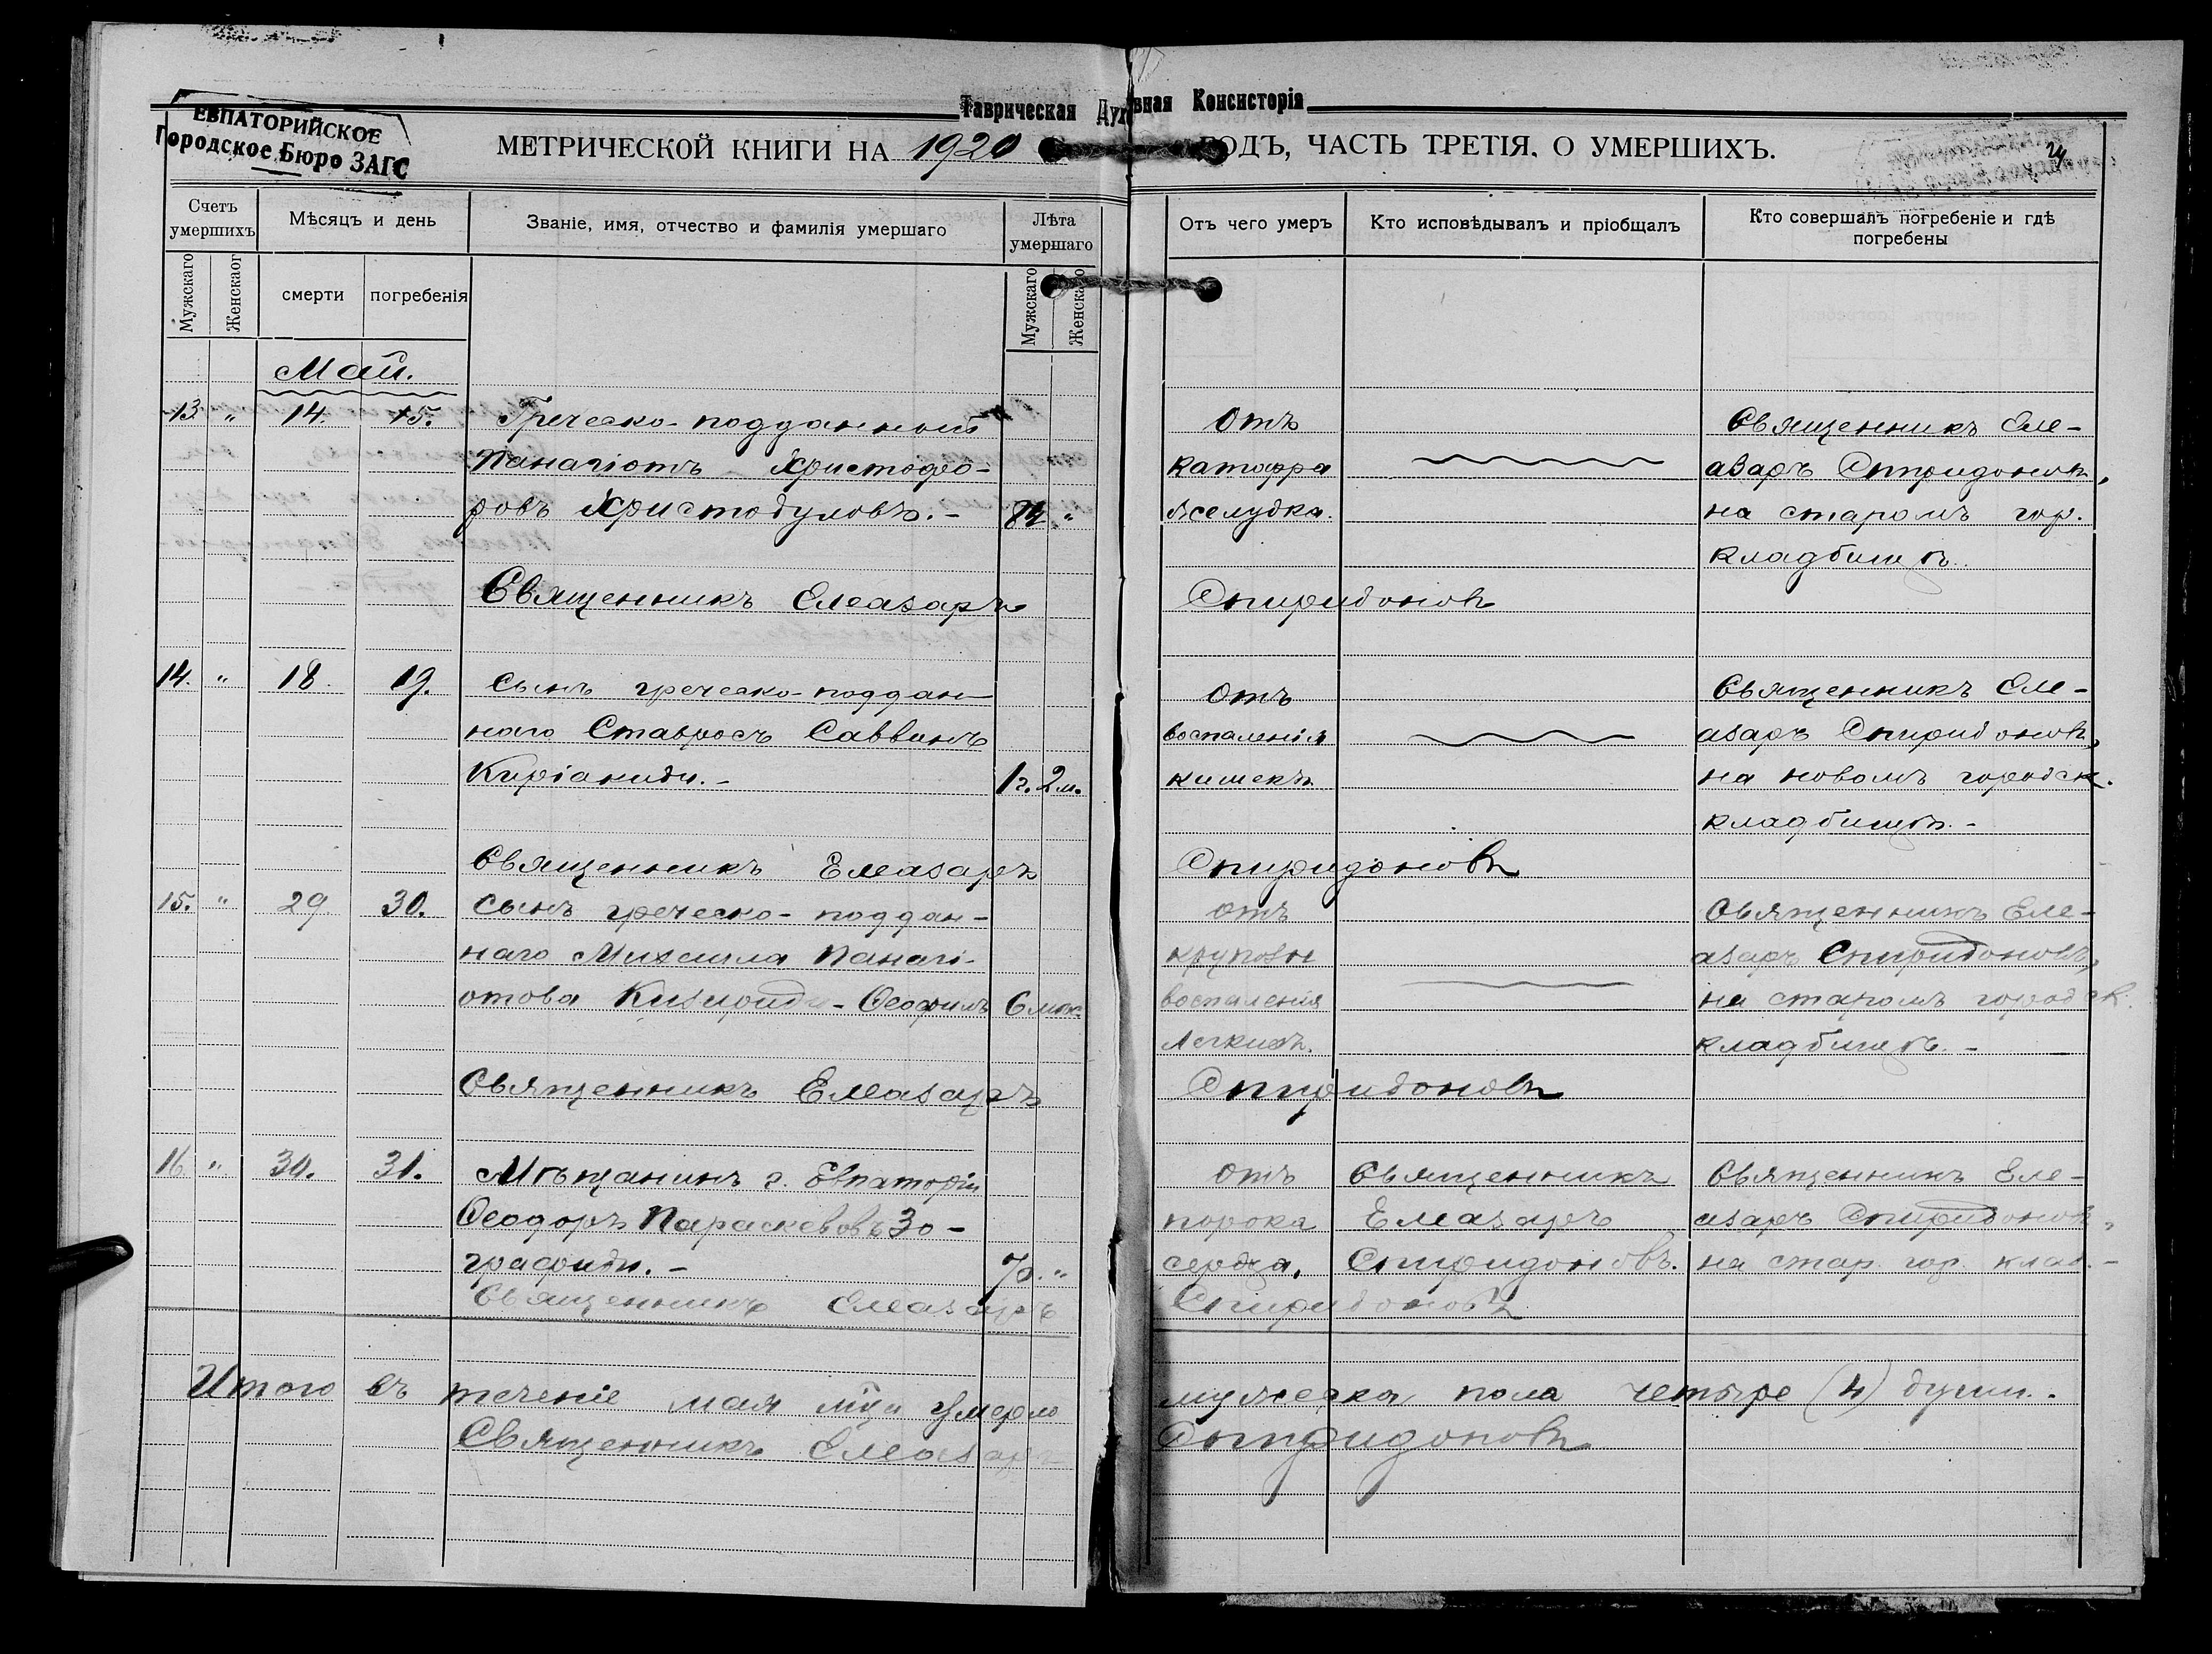 Таврическая Духовная Консисторія
ЕВПАТОРИЙСКОЕ
Городское Бюро ЗАГС
МЕТРИЧЕСКОЙ КНИГИ НА 1920 ГОДЪ, ЧАСТЬ ТРЕТІЯ, О УМЕРШИХЪ.
Счетъ умершихъ
Мѣсяцъ и день
Званіе, имя, отчество и фамилія умершаго
Лѣта умершаго
Отъ чего умеръ
Кто исповѣдывалъ и пріобщалъ
Кто совершалъ погребеніе и гдѣ погребены
Мужскаго
Женскаог
смерти
погребенія
Мужскаго
Женскаго
Май.
13 " 14. 15. Греческо-подданный Отъ Священникъ Еле-
Панагіотъ Христофо- катарра азаръ Спиридоновъ,
ровъ Христодуловъ.- " желудка. на старомъ гор.
кладбищѣ.
Священникъ Елеазаръ Спиридоновъ
14. " 18. 19. Сынъ греческо-поддан- Отъ Священникъ Еле-
наго Ставросъ Саввинъ воспаленія азаръ Спиридоновъ,
Киріакиди.- 1г. 2м. кишекъ. на новомъ городск.
кладбищѣ.-
Священникъ Елеазаръ Спиридоновъ
15. " 29 30. Сынъ греческо-поддан- отъ Священникъ Еле-
наго Михаила Панагі- крупозн азаръ Спиридоновъ,
отова - Ѳеофилъ 6 мѣс. воспаленія на старомъ городск.
легкихъ. кладбищѣ.-
Священникъ Елеазаръ Спиридоновъ
16 " 30. 31. Мѣщанинъ г. Евпаторіи Отъ Священникъ Священникъ Еле-
Ѳеодоръ Параскевовъ Зо- порока Елеазаръ азаръ Спиридоновъ,
графиди.- 70. " сердца. Спиридоновъ. на стар. гор. клад.-
Священникъ Елеазаръ Спиридоновъ
Итого въ теченіе мая м҃ца умерло мужеска пола четыре (4) души.
Священникъ Елеазаръ Спиридоновъ